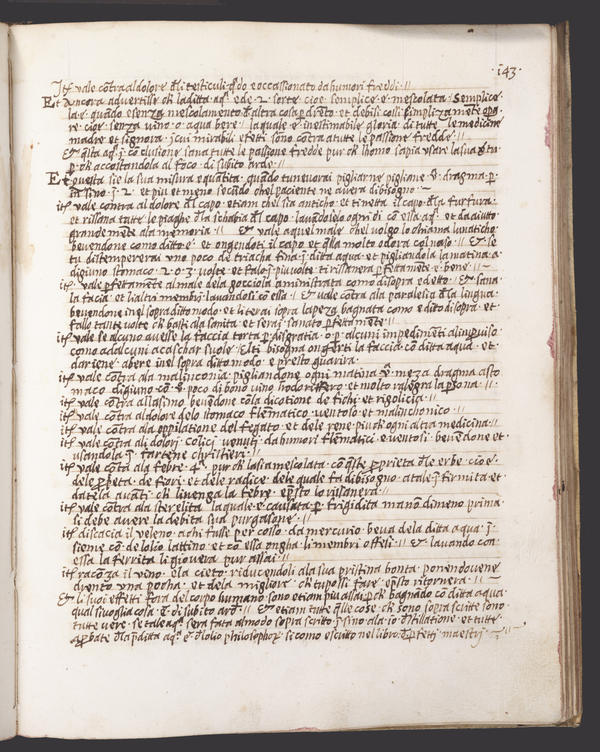 ·143·
Itē vale cōtra al dolore đli testiculi qñdo e occassionato da humori freddi · //
Et Ancora advertissi ch la ditta aqᵃ e de · 2 · sorte cioe semplice e mescolata · Semplice
la e quādo e senza mescolamento đ altra cosa ꝑ dreto · et debilli cossi simpliza mēte opa
re cioe senza vino o aqua bere · laquale e inestimabile gloria di tutte le medicine
madre et signora · j cui mirabili effetti sono cōtra a tutte le passioni fredde · //
& alta aqᵃ j cōclusione sana tutte le passione fredde pur ch lhomo sapia usare la sua
ꝑ ch accostandola al foco di subito arde · //
Et questa sie la sua misura equātita · quādo tu nevorai pigliarne pigliane dragma ꝑ
sino · j · 2 · et piu et meno secūdo chel paciente ne avera di bisogno · ~
itē vale contra al dolore đl capo · etiam chel sia anticho · et tinetta il capo đla furfura ·
et rissana tutte le piaghe đla schabia đl capo · lavandolelo ogni di cō essa aqᵃ · et da aiuto
grande mēte ala memoria · // & vale aquel male chel volgo lo chiama lunaticho
bevendone como ditto e · et ongendoti il capo et qlla molto odora col naso · // & se
tu distempererai uno poco de triacha fina j ditta aqua · et pigliandola la matina a
digiuno stomaco · 2 · o · 3 · volte · et falo j piu volte ti rissanera ꝑfettamēte e bene · // ~
itē vale ꝑfettamēte al male dela gocciola aministrata como disopra e detto · & sana
la facia · et li altri membri lavandoli cō essa · // & vale cōtra ala paralesia đla lingua
bevendone inel sopraditto modo · et literai sopra la peza bagnata como e ditto disopra · et
fallo tante volte ch basti ala sanita · et serai sanato ꝑfettamēte · //
itē vale se alcuno avesse la faccia torta ꝑ disgratia · o ꝑ alcuni impedimēti alinprouiso
como ad alcuni acaschar suole · Elti bisogna ongerti la faccia cō ditta aqua · et
dar iene abere inel sopra ditto modo · e presto guarira ·
itē vale cōtra ala malinconia · pigliandone ogni matina meza dragma a sto
maco digiuno cō poco di bono vino · et molto ralegra la ꝑsona · //
itē vale cōtra al lasimo bevēdone cōla dicotione de fichi · et rigolicia · //
itē vale cōtra al dolore delo stomaco flemātico · ventoso et malinchonico · //
itē vale cōtra ala oppilatione del fegato · et dele rene piu ch ogni altra medicina · //
itē vale cōtra ali dolori colici venuti da humori flematici e ventosi · bevendone et
usandola j fartene christieri · //
itē vale cōtra ala febre · 4ᵃ · pur ch la sia mescolata · cōqste ꝑprieta đle erbe · cioe ·
dele ꝑbeta · de fiori · et dele radice dele quale fa dibisogno a tale j firmita et
datela avāti ch li venga la febre · e psto lo rissanera ·
itē vale cōtra ala sterelita laquale e causata ꝑ frigidita ma nō dimeno prima
si debe avere la debita sua purgasone · //
itē discacia il veleno · a chi fusse percosso da mercurio · beva dela ditta aqua · j ·
sieme cō delo lio lattino · et cō essa ongha li membri offesi · // & lavando con
essa la ferrita li giovera pur assai · //
itē racōza il vino ela cieto · riducendoli ala sua pristina bonta · ponendovene
drento una pocha · et dela migliore ch tu possi fare · e psto ritornera · // ~
& li suoi effeti fora del corpo humano sono etiam piu assai · ꝑ ch bagnādo cō ditta aqua
qual sivoglia cosa di subito ard · // & etiam tutte qlle cose ch sono sopra scritte sono
tutte vere · se tale aqᵃ sera fata al modo sopra scritto · j sino ala · io · đstillatione · et tutte
aprobate đla pditta aqᵃ e đlolio philosophoꝝ · si como e scritto nel libro đ pfetti maestrj · ~ // ~